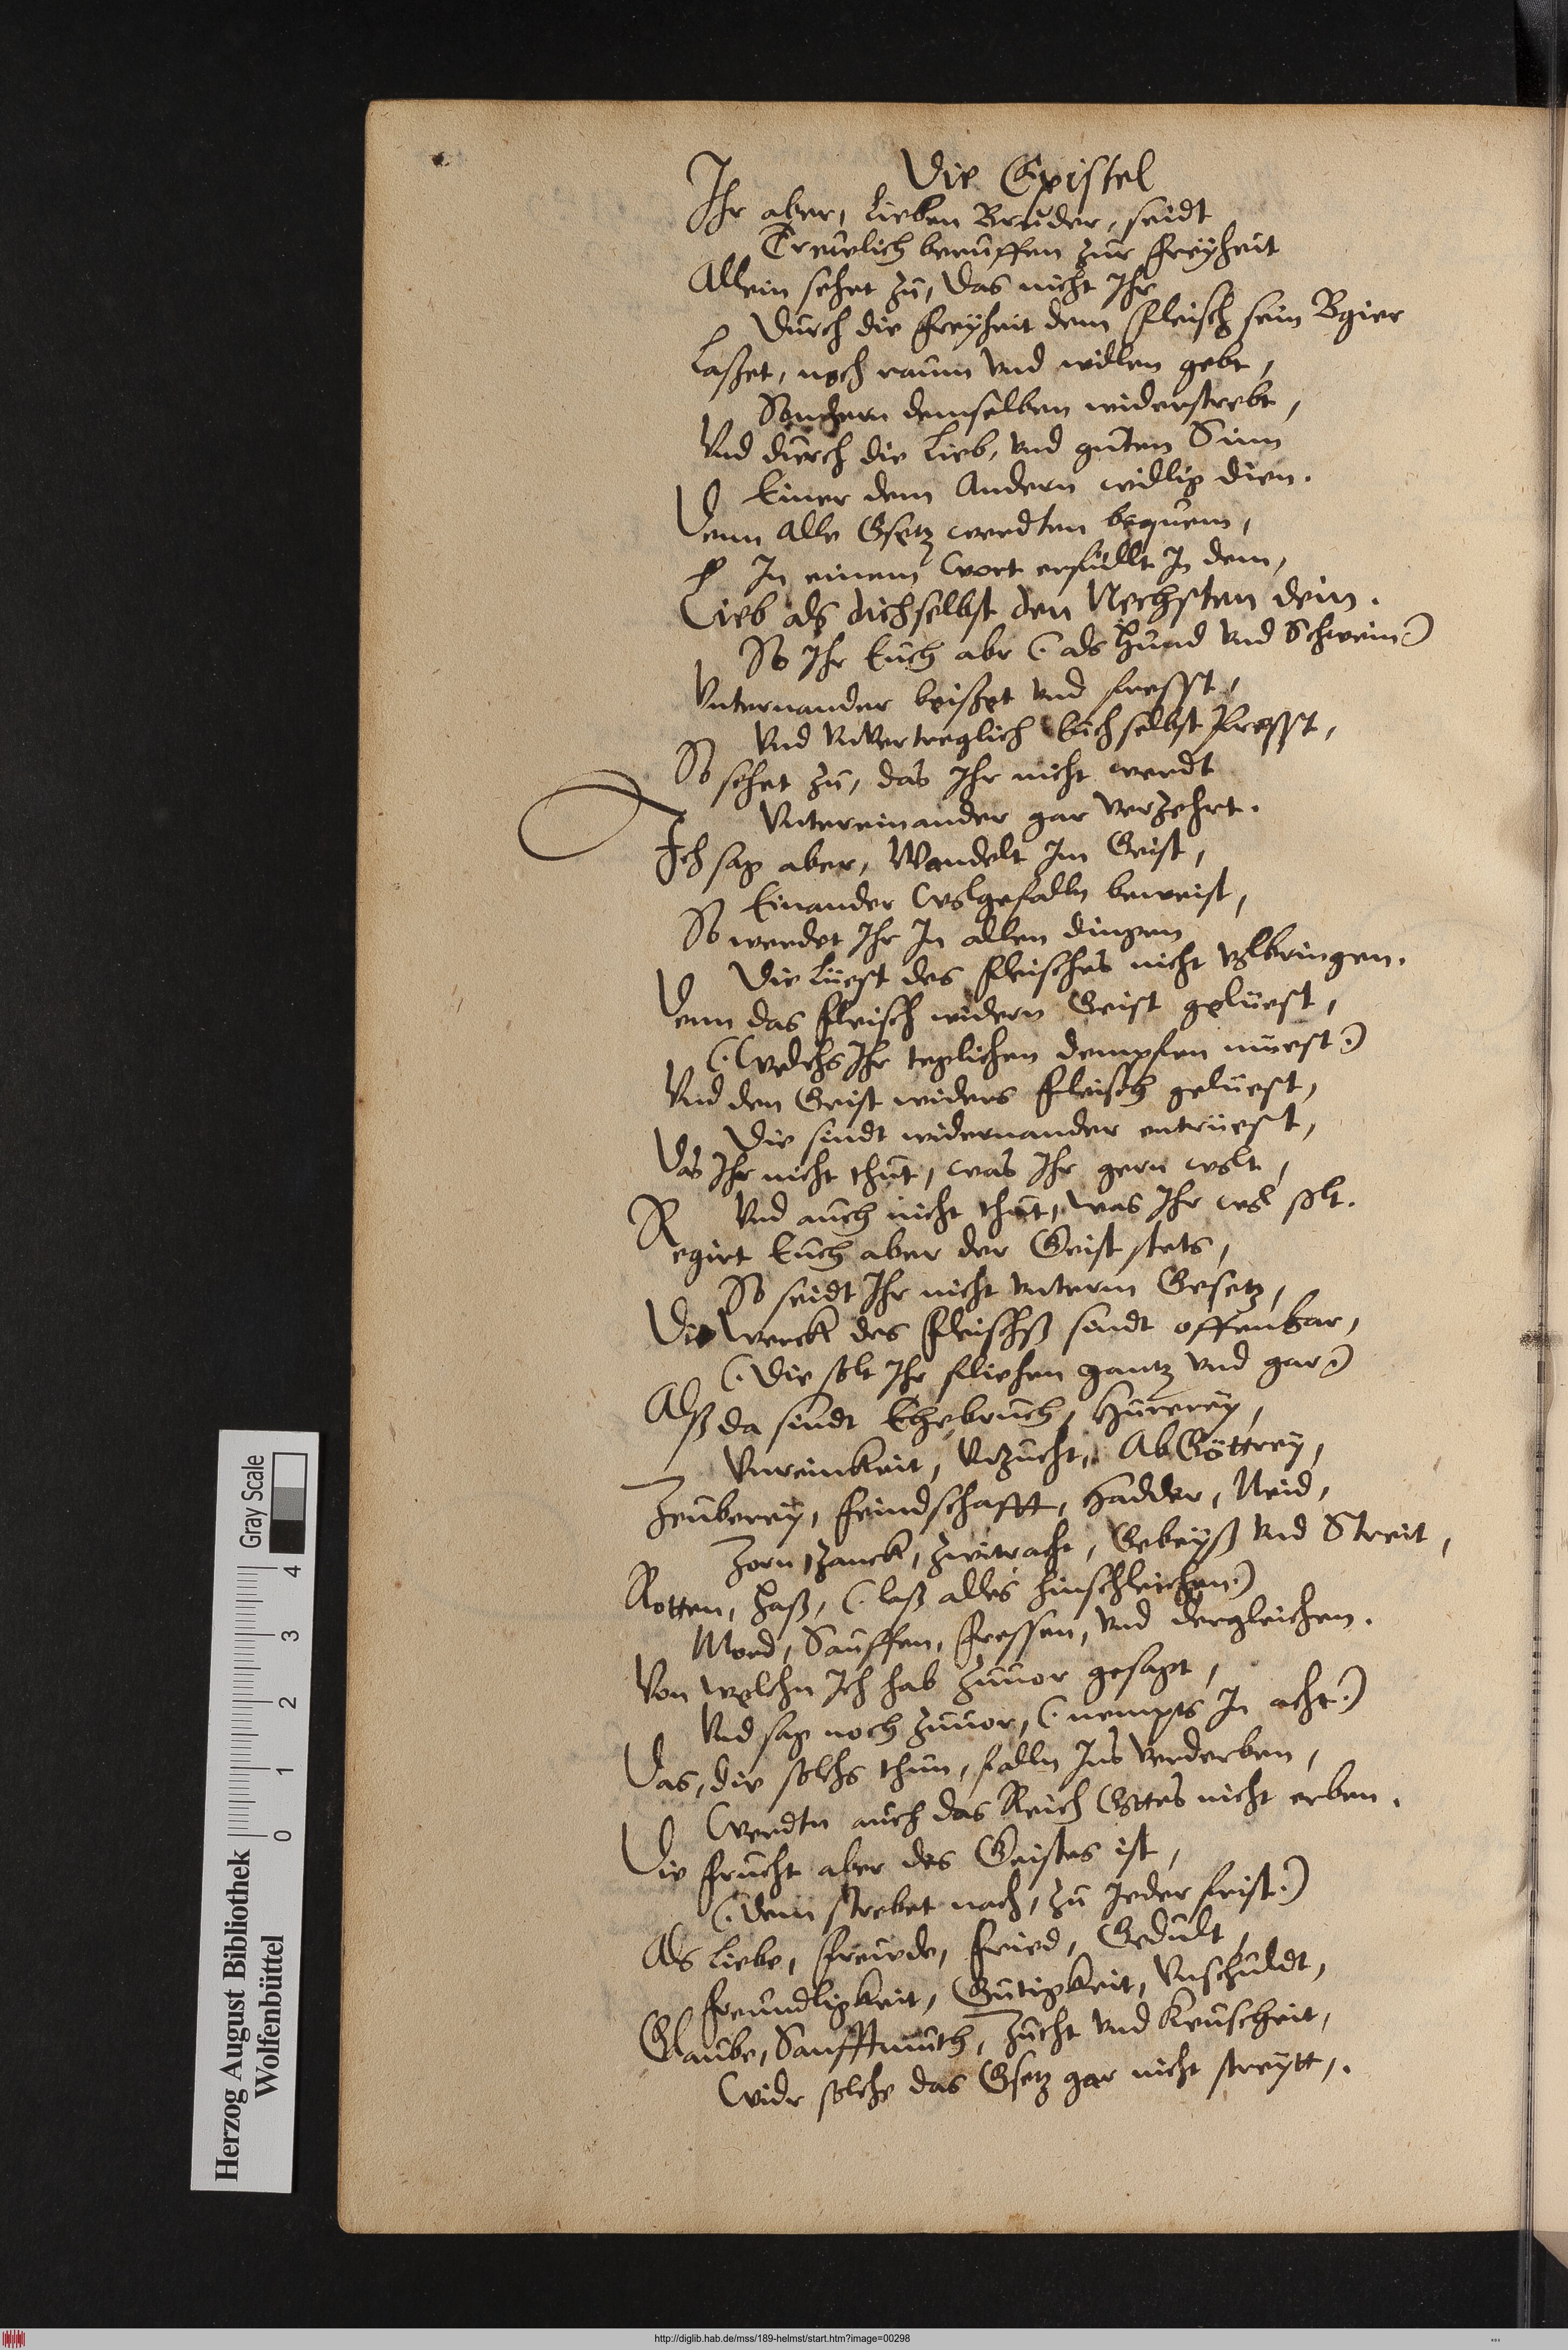 Die Epistel
Ihr aber, Lieben Brüder, seidt
Trewlich beruffen zur freyheit
Allein sehet zu, das nicht Ihr
Durch die freyheit dem fleisch sein Bgier
Laßet, noch raum vnd willen gebt,
Sondern demselben widerstrebt,
Vnd durch die Lieb, vnd guten Sinn
Einer dem Andern willig dien.
Denn Alle Gsetz werdten bequem,
In einem Wort erfüllt In dem,
Lieb als dichselbst den Nechsten dein.
So Ihr Euch abr (als Hund vnd Schwein)
Vnternander beißet vnd fresst,
Vnd vnvertreglich Euch selbst Presst,
So sehet zu, das Ihr nicht werdt
Vntereinander gar verzehrt.
Ich sag aber, Wandelt Im Geist,
Einander Wolgefalln beweist,
So werdet Ihr In allen dingen
Die Lüest des fleisches nicht volbringen.
Denn das fleisch widern Geist gelüest,
(Welchs Ihr teglichen dempfen müest)
Vnd den Geist widers fleisch gelüest,
Die sindt widernander entrüest,
Das Ihr nicht thut, was Ihr gern wolt,
Vnd auch nicht thut, was Ihr wol solt.
Regirt Euch aber der Geist stets,
So seidt Ihr nicht vnterm Gesetz,
Die Werck des fleischß sindt offenbar,
(Die solt Ihr fliehen gantz vnd gar)
Alß da sindt Ehebruch, Hurerey,
Vnreinkeit, Vnzucht, AbGöttrey,
Zeuberey, feindschafft, Hadder, Neid,
Zorn, Zanck, Zwitracht, Gebeyß vnd Streit,
Rotten, Haß, (laß alles hinschleichen)
Mord, Sauffen, fressen, vnd dergleichen.
Von welchn Ich hab zuuor gesagt,
Vnd sag noch zuuor, (nempts In acht)
Das, die solchs thun, falln Ins verderben,
Werdtn auch das Reich Gottes nicht erben.
Die frucht aber des Geistes ist,
(Dem strebet nach, zu Jeder frist)
Als Liebe, freude, fried, Gedult,
freundligkeit, Gütigkeit, Vnschuldt,
Glaube, Sanfftmuth, Zucht vnd Keuscheit,
Widr solche das Gsetz gar nicht streytt.
Herzog August Bibliothek
Wolfenbüttel
0 1 2 3 4
Gray Scale
http://diglib.hab.de/mss/189-helmst/start.htm?image=00298